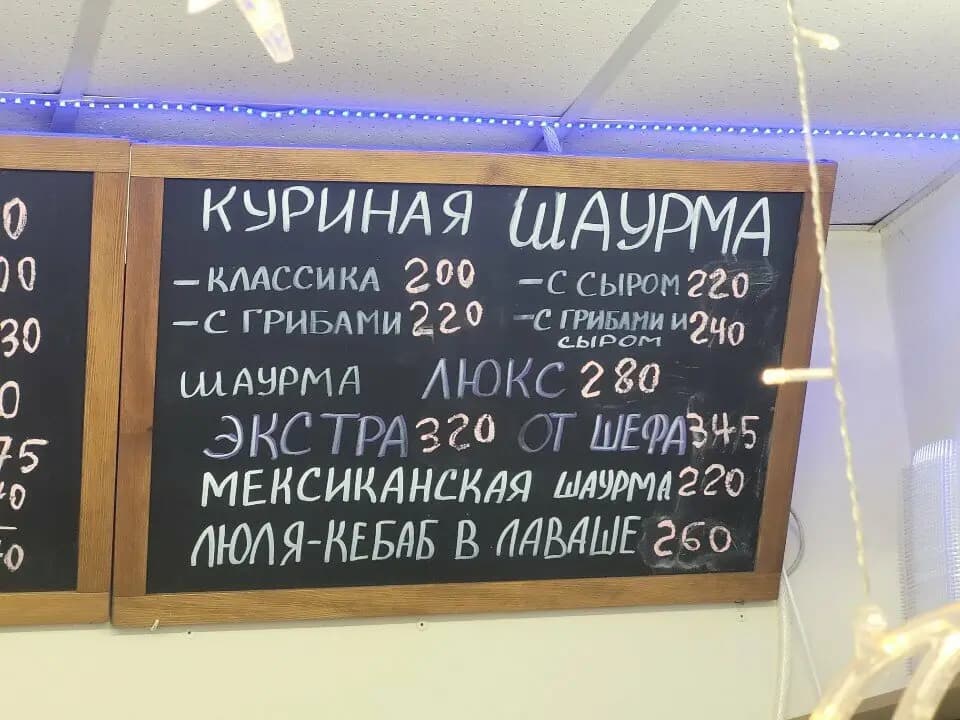 КУРИНАЯ ШАУРМА
- КЛАССИКА 200 - С СЫРОМ 220
- С ГРИБАМИ 220 - С ГРИБАМИ И СЫРОМ 240
ШАУРМА ЛЮКС 280
ЭКСТРА 320 ОТ ШЕФА 345
МЕКСИКАНСКАЯ ШАУРМА 220
ЛЮЛЯ-КЕБАБ В ЛАВАШЕ 260